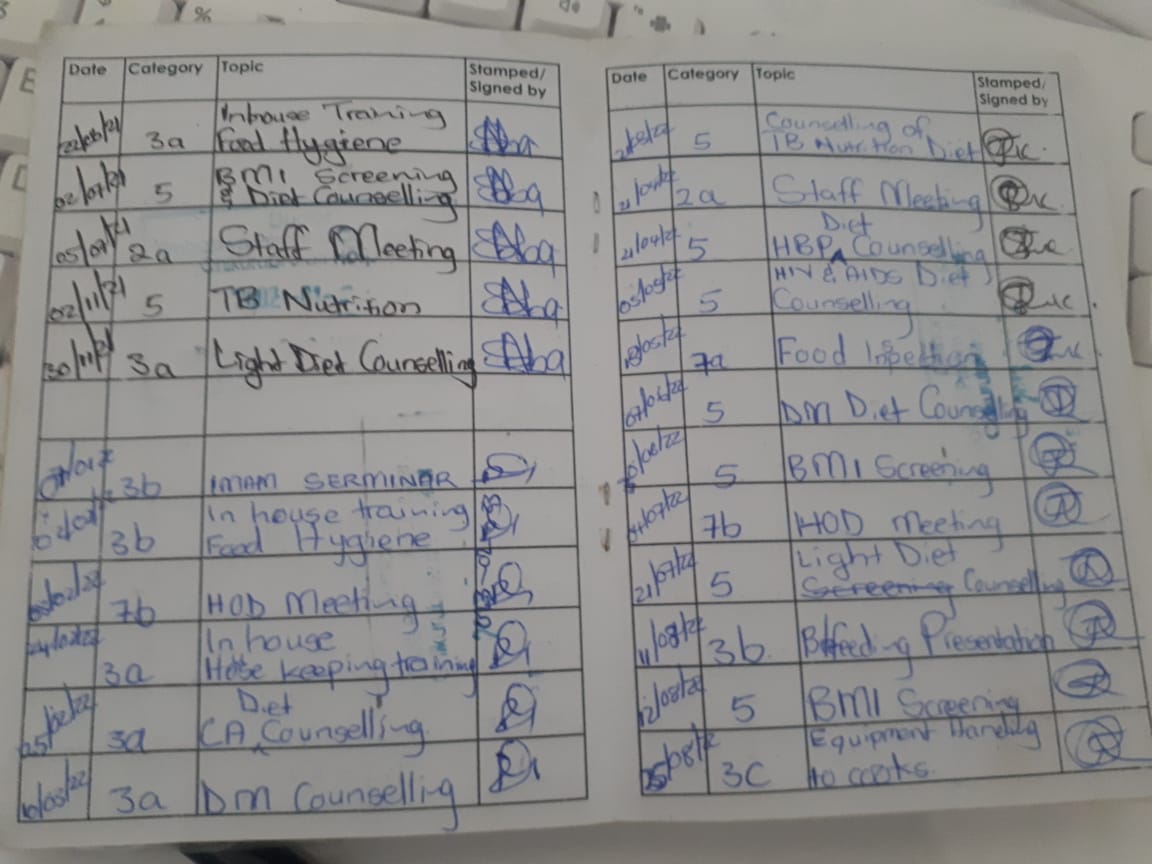 Date Category Topic Stamped/
Signed by
3a Inhouse Training
Food Hygiene
02/07/21 5 BMI Screening
& Diet Counselling
05/07/21 2a Staff Meeting
02/11/21 5 TB Nutrition
30/11/21 3a Light Diet Counselling
3b IMAM SERMINAR
3b In house training
Food Hygiene
7b HOD Meeting
3a In house
House keeping training
3a Diet
CA Counselling
10/03/22 3a DM Counselling
Date Category Topic Stamped/
Signed by
5 Counselling of
TB Nutrition Diet
2a Staff Meeting
21/04/22 5 Diet
HBP Counselling
05/05/22 5 HIV & AIDS Diet
Counselling
7a Food Inpection
07/06/22 5 DM Diet Counselling
5 BMI Screening
7b HOD Meeting
21/07/22 5 Light Diet
Screening Counselling
11/08/22 3b Bfeeding Presentation
12/08/22 5 BMI Screening
3C Equipment Handling
to cooks.